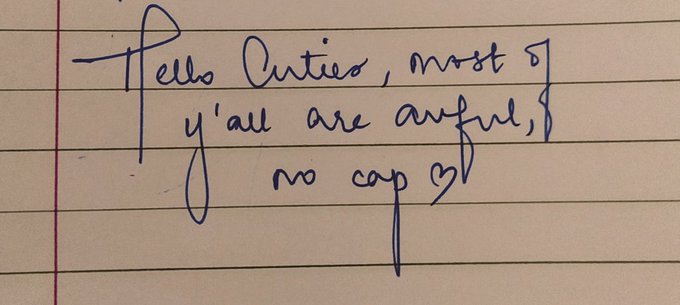 Hello Cuties, most of
y'all are awful,
no cap ♡